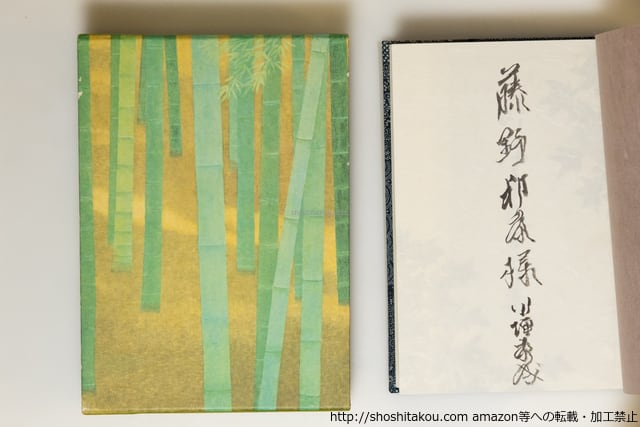 藤野邦康様
川端康成
shoshitakou.com
http://shoshitakou.com amazon等への転載・加工禁止